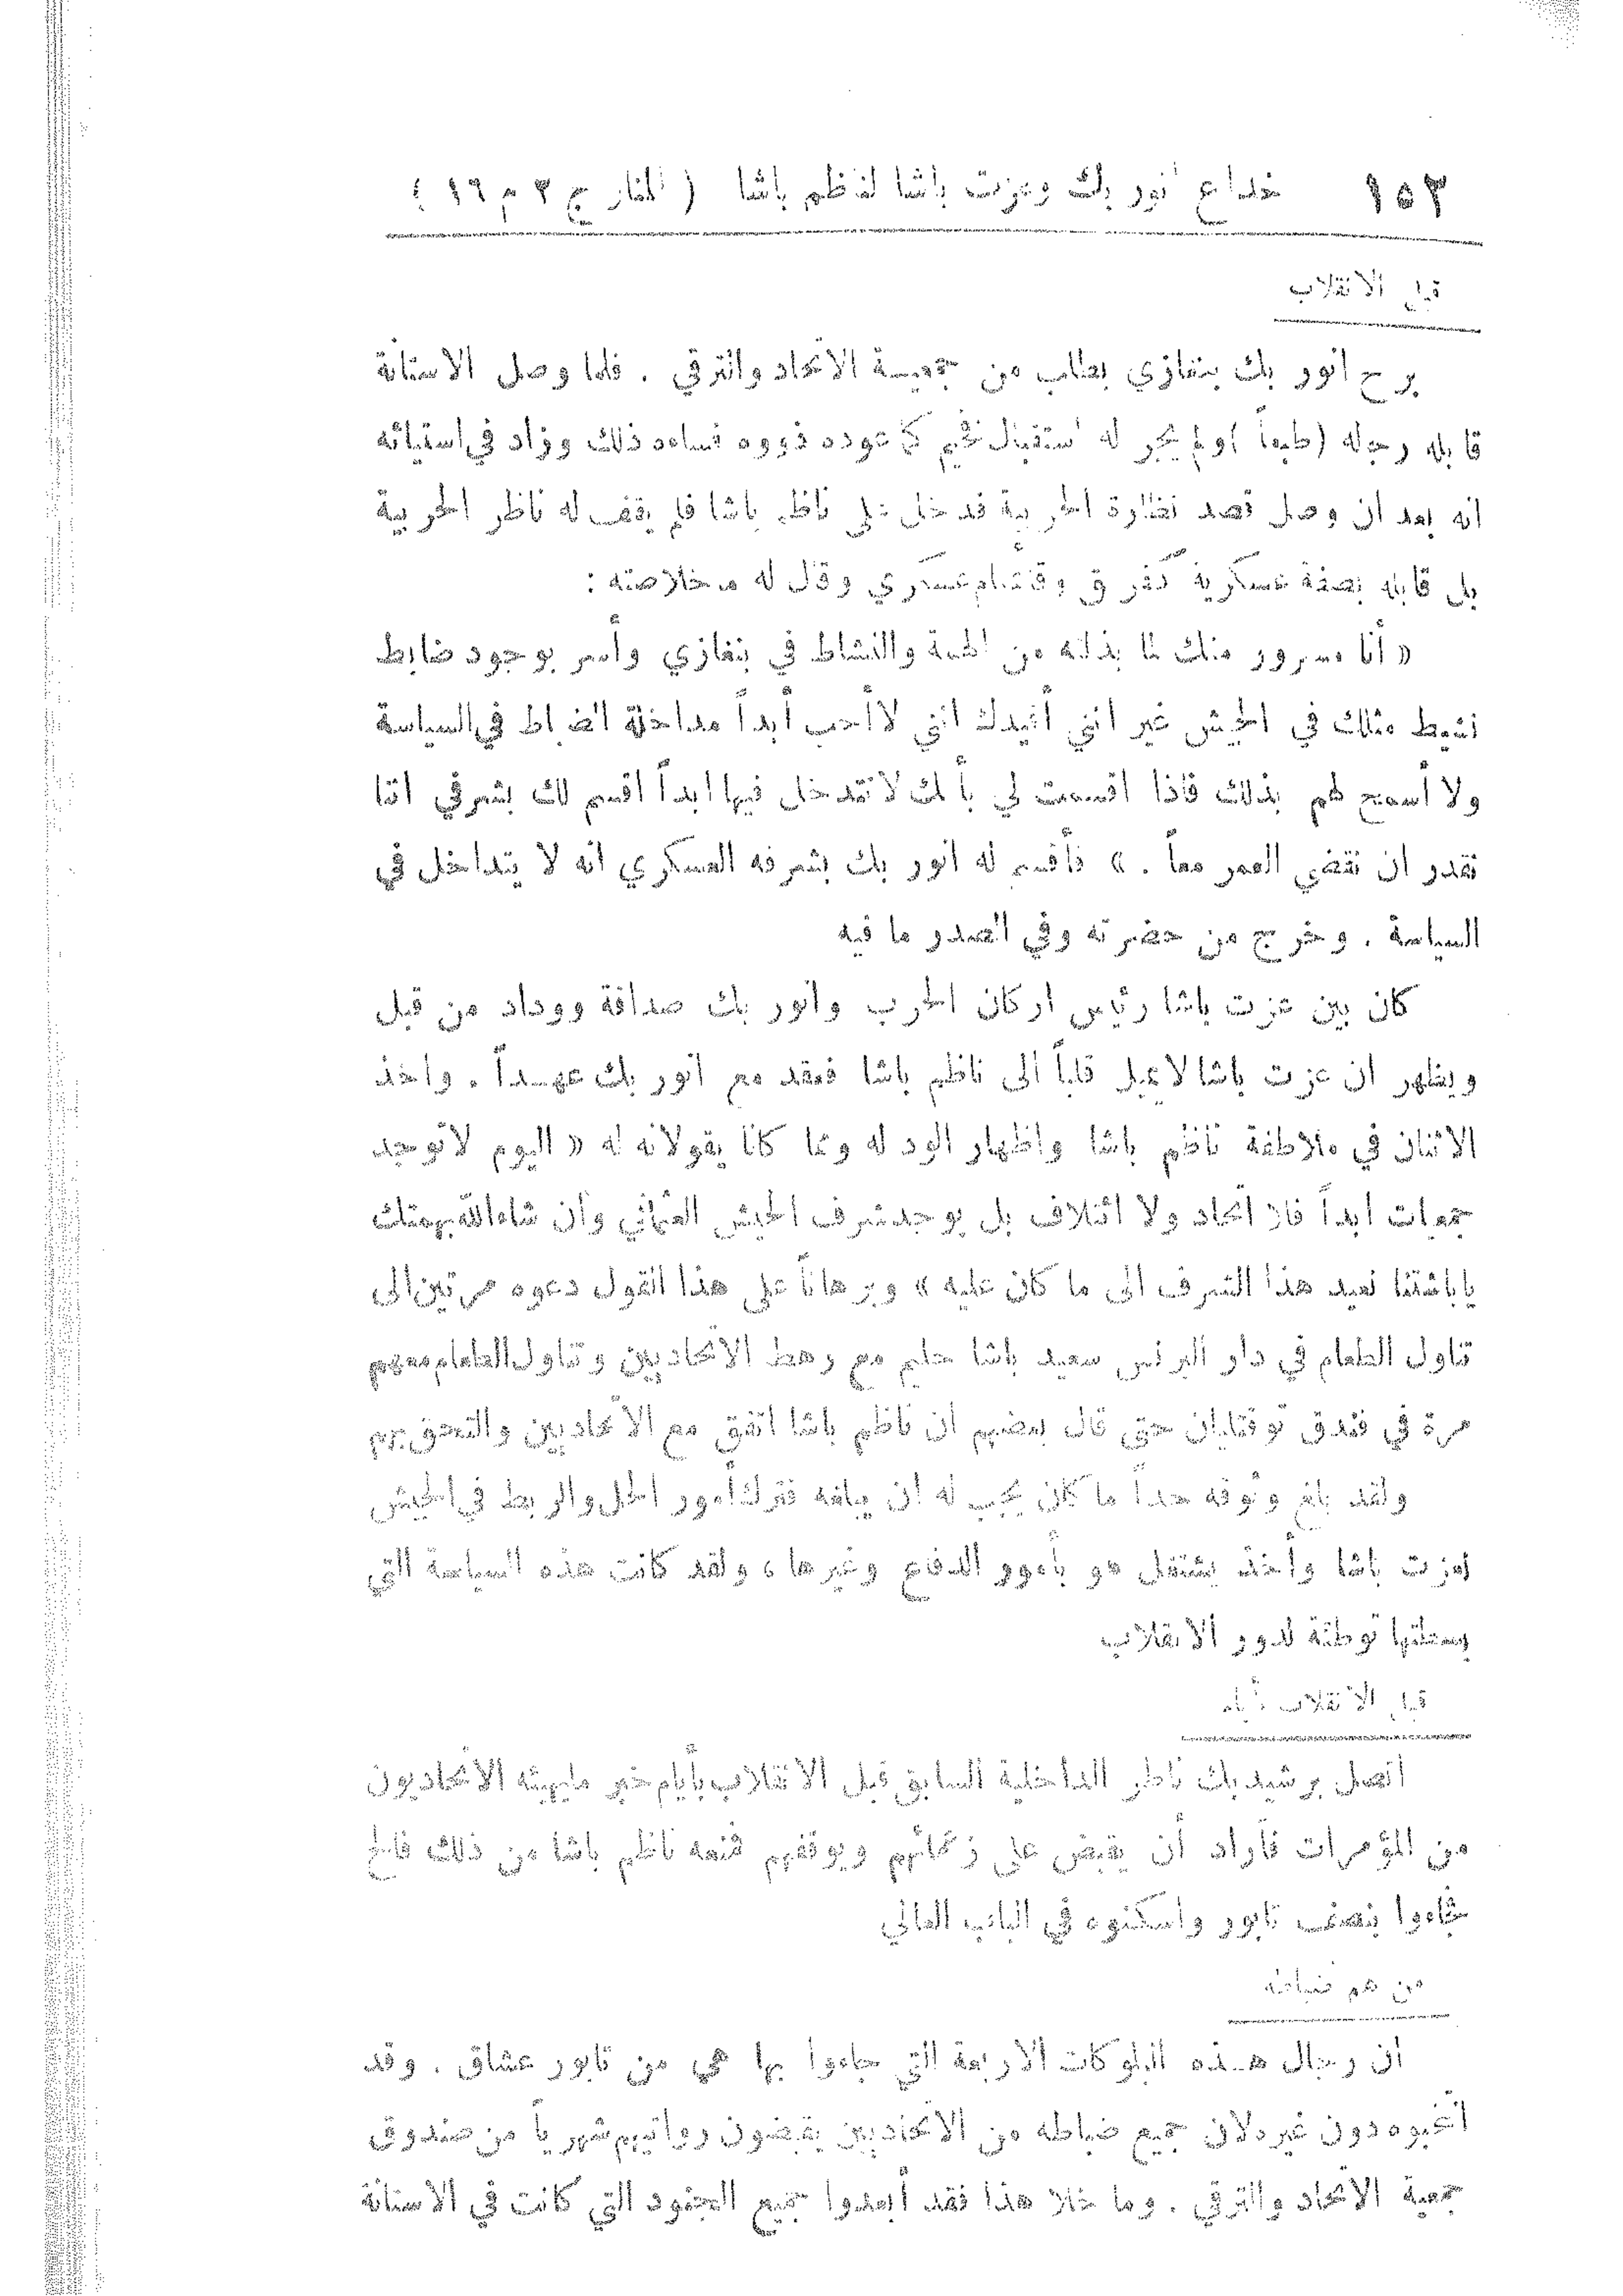 ١٥٢ خداع أنور بك وعزت باشا لناظم باشا ( المنار ج ٢ م ١٦ )
قبل الانقلاب
برح انور بك بنغازي بطلب من جمعية الاتحاد والترقي . فلما وصل الاستانة
قابله رجاله (طبعاً) ولم يجر له استقبال فخم كما عوده ذووه فساءه ذلك وزاد في استيائه
انه بعد ان وصل قصد نظارة الحربية فدخل على ناظم باشا فلم يقف له ناظر الحربية
بل قابله بصفة عسكرية وقال له ما خلاصته :
« أنا مسرور منك لما بذلته من الهمة والنشاط في بنغازي وأسر بوجود ضابط
نشيط مثلك في الجيش غير انني أفيدك انني لا أحب أبداً مداخلة الضباط في السياسة
ولا أسمح لهم بذلك فاذا اقسمت لي بأنك لا تتدخل فيها ابداً اقسم لك بشرفي اننا
نقدر ان نقضي العمر معاً . » فأقسم له انور بك بشرفه العسكري انه لا يتداخل في
السياسة . وخرج من حضرته وفي الصدر ما فيه
كان بين عزت باشا رئيس اركان الحرب وانور بك صداقة ووداد من قبل
ويظهر ان عزت باشا لا يميل قلباً الى ناظم باشا فعقد مع انور بك عهداً . واخذ
الاثنان في ملاطفة ناظم باشا واظهار الود له ومما كانا يقولانه له « اليوم لا توجد
جمعيات ابداً فلا اتحاد ولا ائتلاف بل يوجد شرف الجيش العثماني وان شاء الله بهمتك
يا باشتنا نعيد هذا الشرف الى ما كان عليه » وبرهاناً على هذا القول دعوه مرتين الى
تناول الطعام في دار البرنس سعيد باشا حليم مع رهط الاتحاديين وتناول الطعام معهم
مرة في فندق توقتليان حتى قال بعضهم ان ناظم باشا اتفق مع الاتحاديين والتحق بهم
ولقد بلغ وثوقه حداً ما كان يجب له ان يبلغه فترك أمور الحل والربط في الجيش
لعزت باشا وأخذ يشتغل هو بأمور الدفاع وغيرها ، ولقد كانت هذه السياسة التي
بسطتها توطئة لدور الانقلاب
قبل الانقلاب بأيام
اتصل برشيد بك ناظر الداخلية السابق قبل الانقلاب بأيام خبر ما يهيئه الاتحاديون
من المؤمرات فأراد أن يقبض على زعمائهم ويوقفهم فمنعه ناظم باشا من ذلك فألح
فجاءوا بنصف تابور واسكنوه في الباب العالي
من هم ضباطه
ان رجال هذه البلوكات الاربعة التي جاءوا بها هي من تابور عشاق . وقد
انتخبوه دون غيره لان جميع ضباطه من الاتحاديين يقبضون رواتبهم شهرياً من صندوق
جمعية الاتحاد والترقي . وما خلا هذا فقد أبعدوا جميع الجنود التي كانت في الاستانة